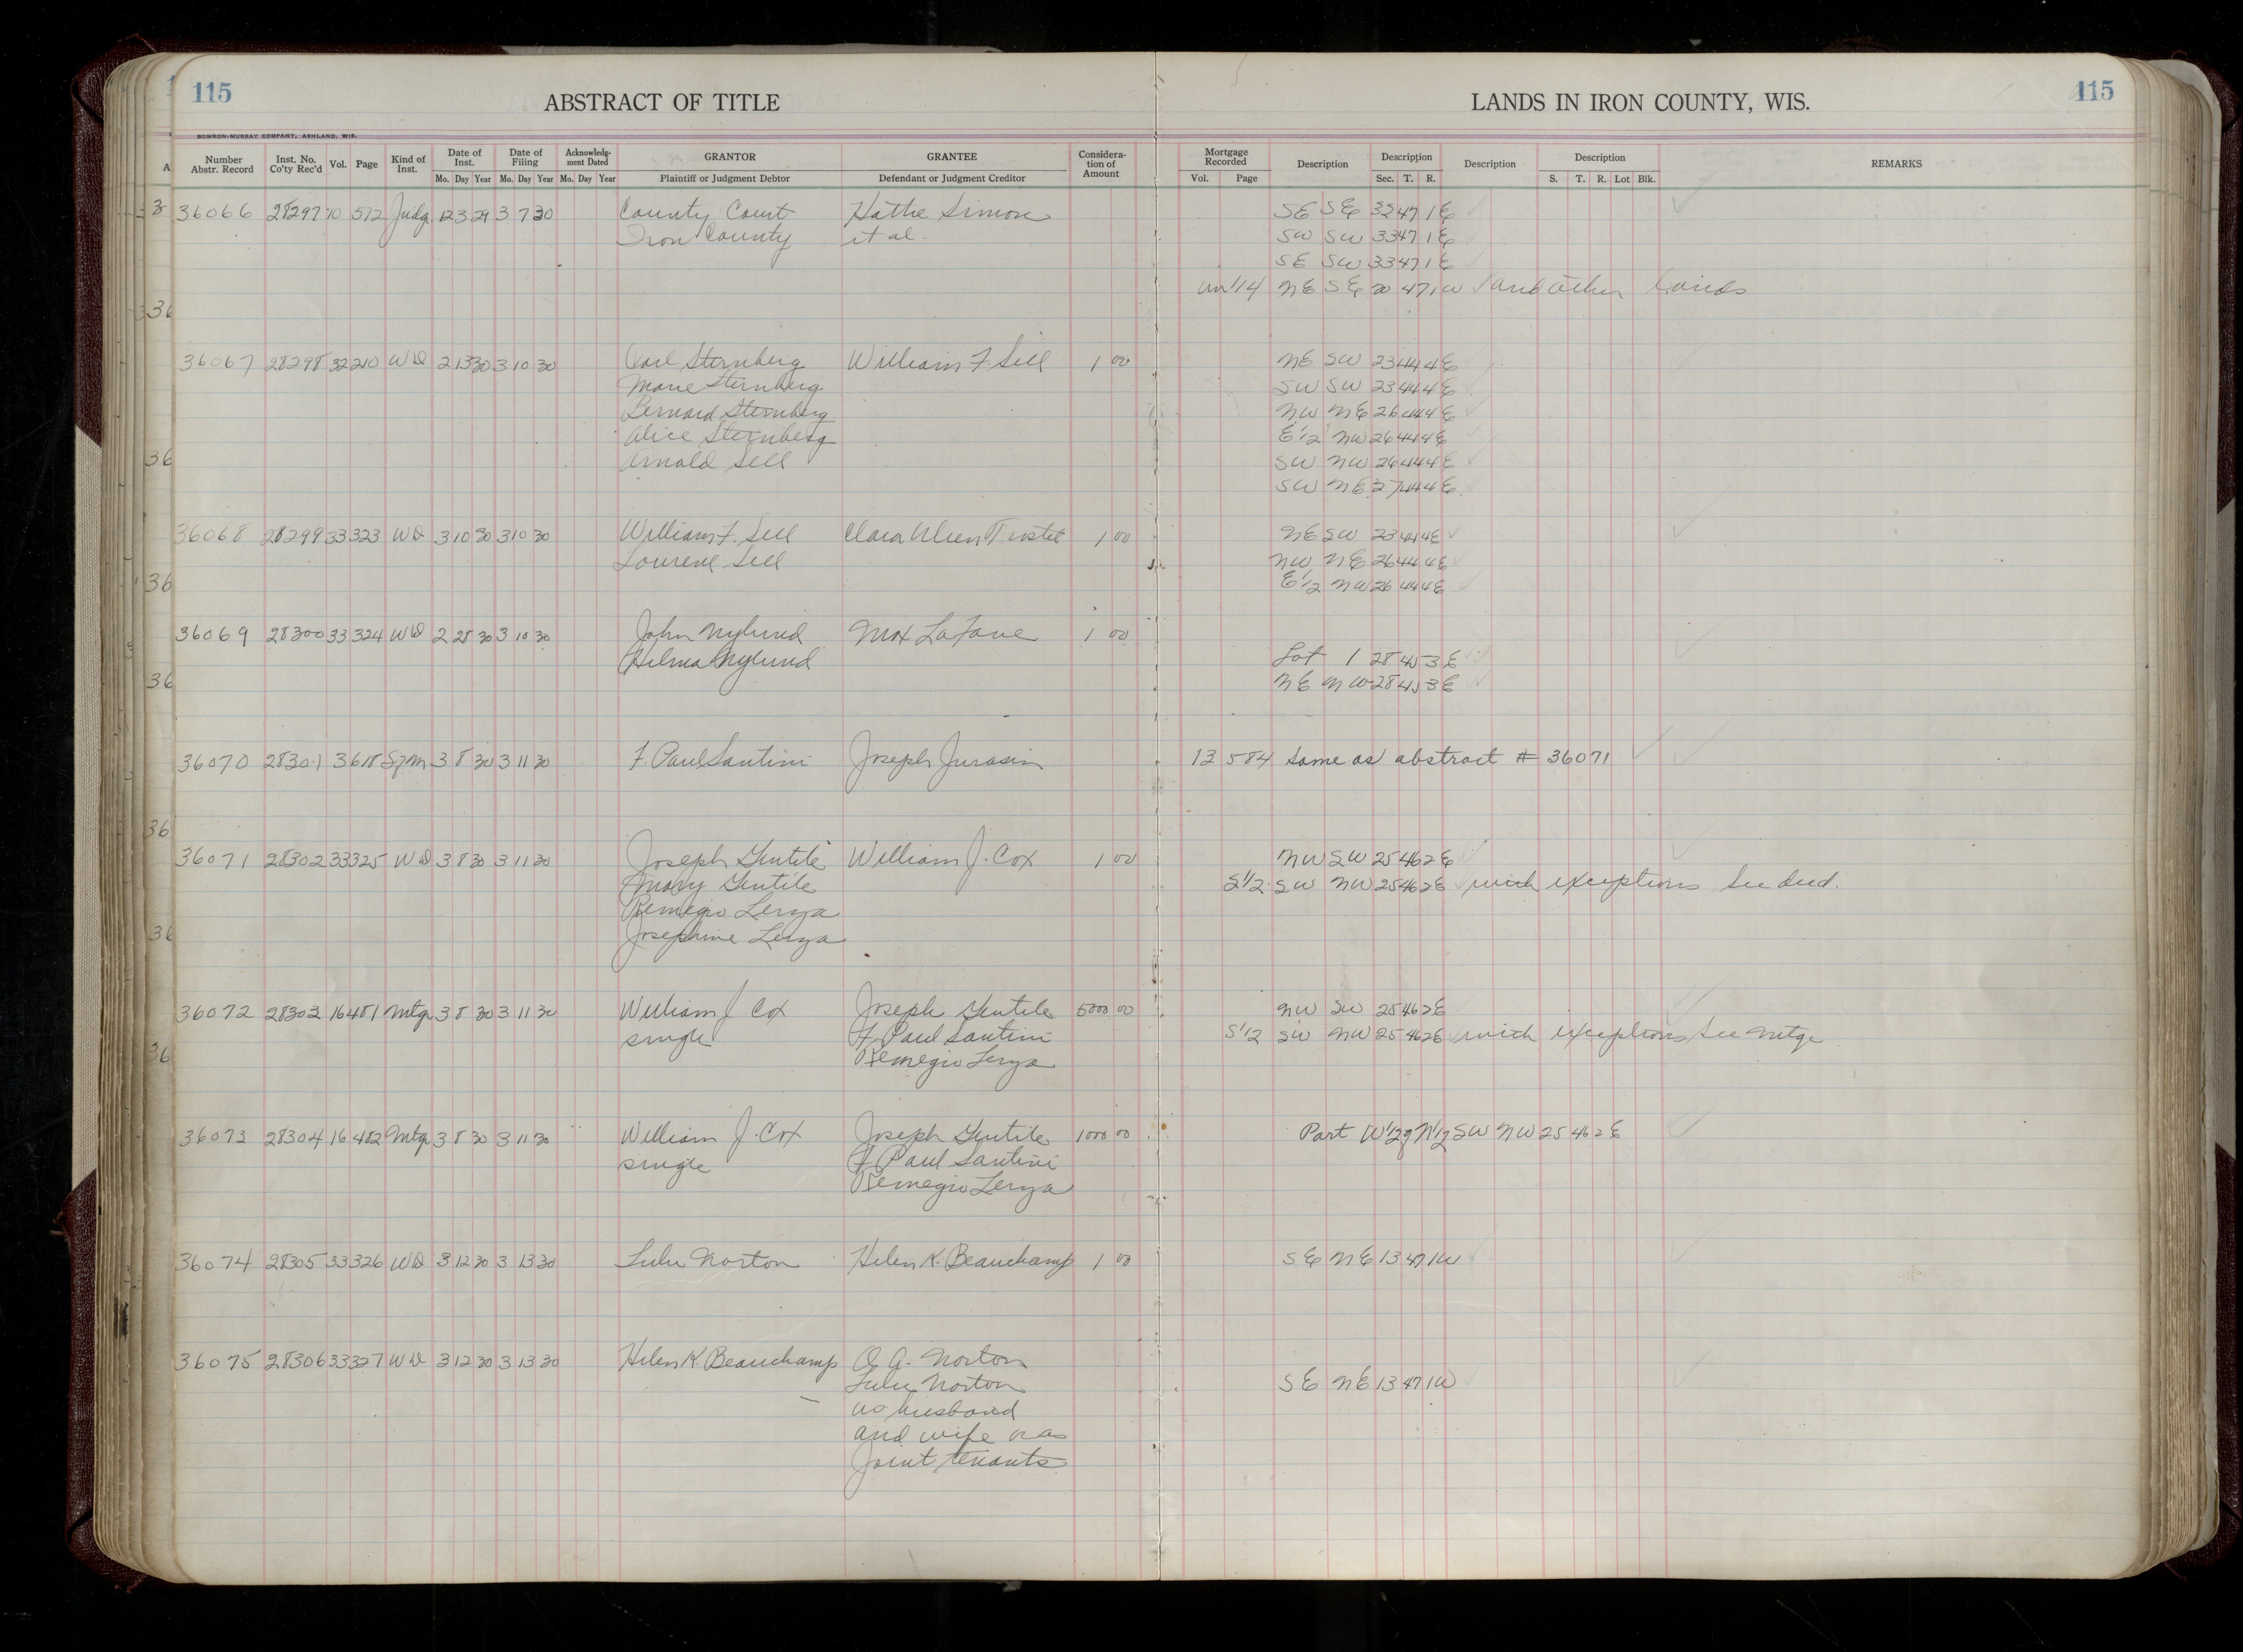 115 ABSTRACT OF TITLE LANDS IN IRON COUNTY, WIS. 115
BOWRON-MURRAY COMPANY, ASHLAND, WIS.
Number Abstr. Record Inst. No. Co'ty Rec'd Vol. Page Kind of Inst. Date of Inst. Mo. Day Year Date of Filing Mo. Day Year Acknowledg-ment Dated Mo. Day Year GRANTOR Plaintiff or Judgment Debtor GRANTEE Defendant or Judgment Creditor Considera-tion of Amount Mortgage Recorded Vol. Page Description Description Sec. T. R. Description Description S. T. R. Lot Blk. REMARKS
36066 28297 10 572 Judg. 12 3 29 3 7 30 County Court Hathe Simon SE SE 32 47 1E
Iron County et al. SW SW 33 47 1E
SE SW 33 47 1E
un 1/14 NE SE 20 47 1W and other lands
36067 28298 32 210 WD 2 13 30 3 10 30 Carl Sternberg William F. Sell 1 00 NE SW 23 44 4E
Marie Sternberg SW SW 23 44 4E
Bernard Sternberg NW NE 26 44 4E
Alice Sternberg E1/2 NW 26 44 4E
Arnold Sell SW NW 26 44 4E
SW NE 27 44 4E
36068 28299 33 323 WD 3 10 30 3 10 30 William F. Sell Clara Uhen Trustee 1 00 NE SW 23 44 4E
Laurene Sell NW NE 26 44 4E
E1/2 NW 26 44 4E
36069 28300 33 324 WD 2 28 30 3 10 30 John Nylund Max LaFave 1 00
Hilma Nylund Lot 1 28 45 3E
NE NW 28 45 3E
36070 28301 3 618 Sgm 3 8 30 3 11 30 F. Paul Santini Joseph Jurasin 13 584 Same as abstract # 36071
36071 28302 33 325 WD 3 8 30 3 11 30 Joseph Gentile William J. Cox 1 00 NW SW 25 46 2E
Mary Gentile S1/2 SW NW 25 46 2E with exceptions See deed.
Remegio Lerza
Josephine Lerza
36072 28303 16 481 Mtge 3 8 30 3 11 30 William J. Cox Joseph Gentile 5000 00 NW SW 25 46 2E
single F. Paul Santini S1/2 SW NW 25 46 2E with exceptions See Mtge
Remegio Lerza
36073 28304 16 482 Mtge 3 8 30 3 11 30 William J. Cox Joseph Gentile 1000 00 Part W1/2 of N1/2 SW NW 25 46 2E
single F. Paul Santini
Remegio Lerza
36074 28305 33 326 WD 3 12 30 3 13 30 Lulu Norton Helen K. Beauchamp 1 00 SE NE 13 47 1W
36075 28306 33 327 WD 3 12 30 3 13 30 Helen K. Beauchamp O. A. Norton
Lulu Norton SE NE 13 47 1W
as husband
and wife as
Joint tenants